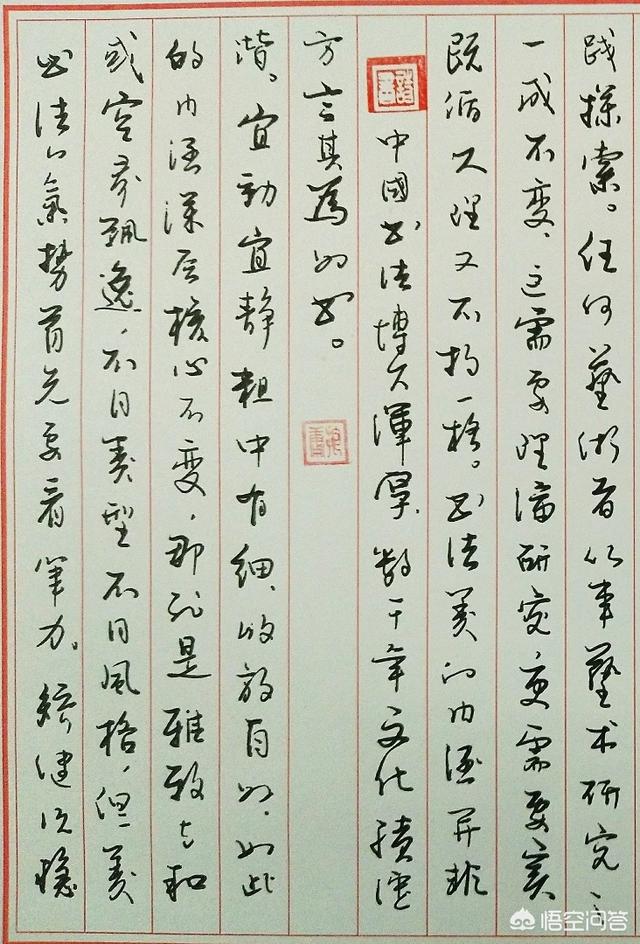 书法的氣势首先要看笔力。矫健沉稳
或空灵飘逸，不同类型不同风格，但美
的内涵深层核心不变，那就是雅致与和
谐。宜动宜静粗中有细、收放自如、如此
方言其為的书。
中國书法博大渾厚、数千年文化積淀
既循大理又不拘一格。书法美的内涵并非
一成不变、这需要理论研究更需要实
践探索。任何藝術者从事藝术研究
悟空问答